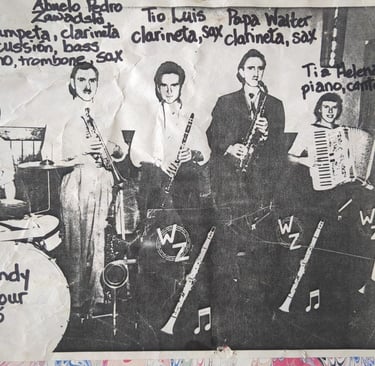 Abuelo Pedro
Zawadsky
mpeta, clarineta
cussión, bass
no, trombone, sax
Tio Luis
clarineta, sax
Papa Walter
clarineta, sax
Tia Helen
piano, cant
WZ
WZ
ndy
our